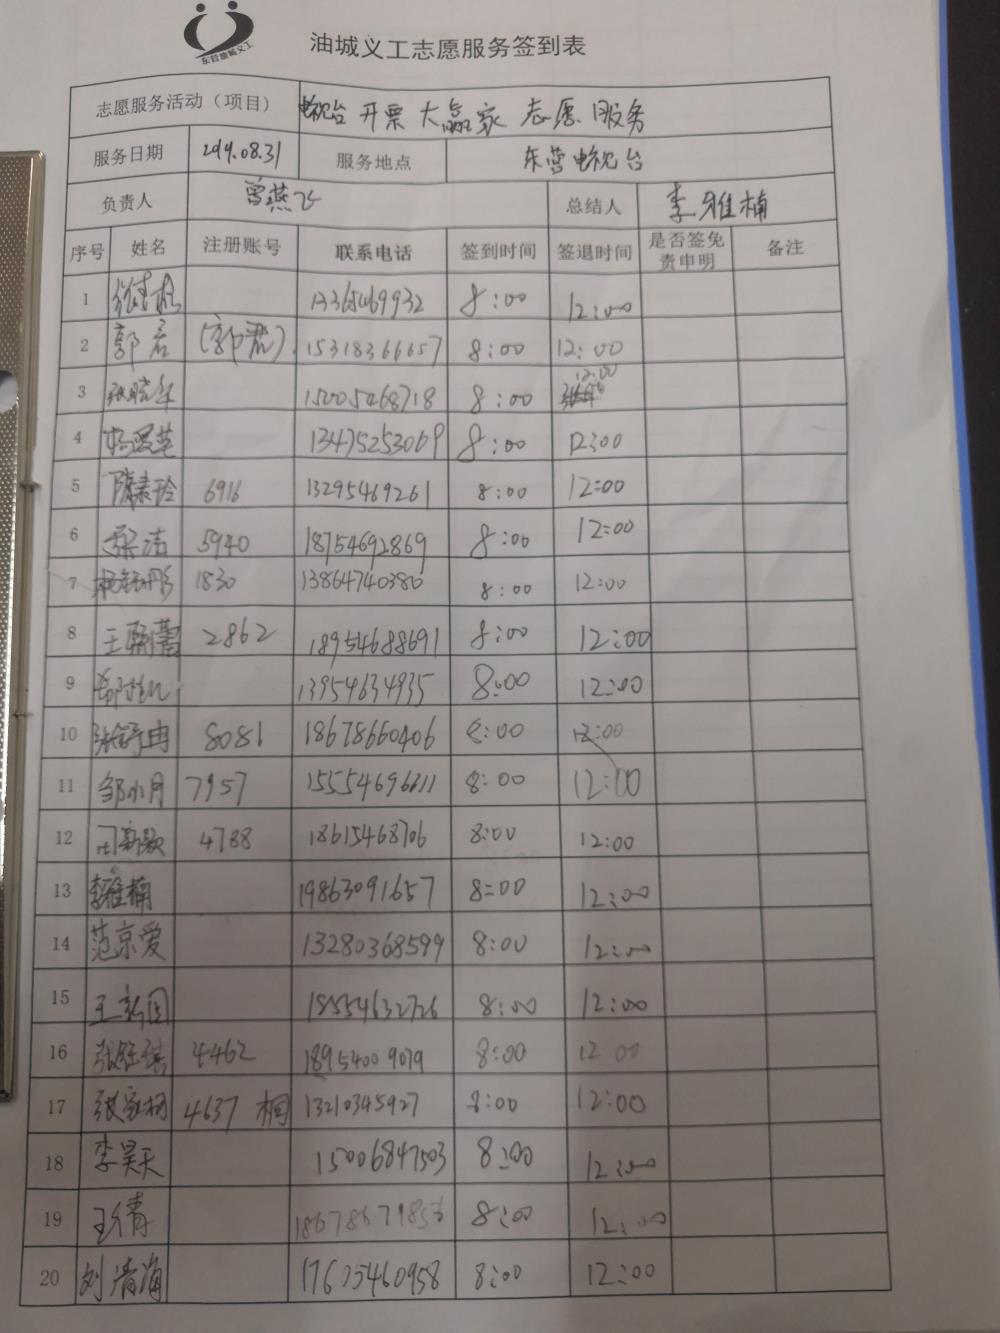 东营油城义工
油城义工志愿服务签到表
志愿服务活动（项目） 电视台 开票大赢家 志愿服务
服务日期 2019.08.31 服务地点 东营电视台
负责人 曾燕飞 总结人 李雅楠
序号 姓名 注册账号 联系电话 签到时间 签退时间 是否签免责申明 备注
1 13365469932 8:00 12:00
2 郭君 (郭君) 15318366657 8:00 12:00
3 张晓华 15005468718 8:00 12:00
4 杨爱莲 13475253069 8:00 12:00
5 隋素玲 6916 13295469261 8:00 12:00
6 梁洁 5940 18754692869 8:00 12:00
7 1830 13864740380 8:00 12:00
8 2862 18954688691 8:00 12:00
9 13954634935 8:00 12:00
10 张舒冉 8081 18678660406 8:00 12:00
11 邹水月 7957 15554696311 8:00 12:00
12 4788 18615468706 8:00 12:00
13 李雅楠 19863091657 8:00 12:00
14 范京爱 13280368599 8:00 12:00
15 王新国 18554632726 8:00 12:00
16 4462 18954009079 8:00 12 00
17 张家桐 4637 桐 13210345927 8:00 12:00
18 李昊天 15006847503 8:00 12:00
19 王倩 8:00 12:00
20 刘清海 17605460958 8:00 12:00